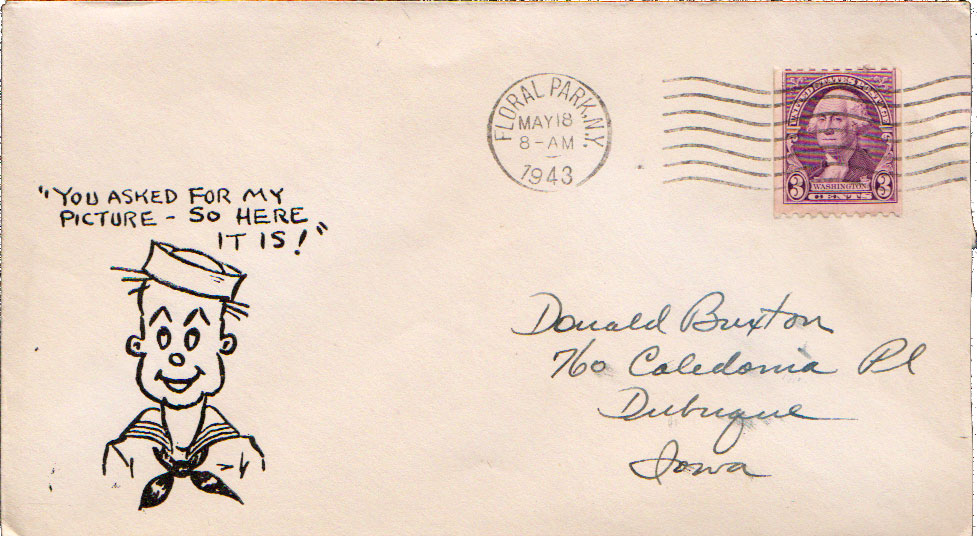 FLORAL PARK, N.Y.
MAY 18
8-AM
1943
UNITED STATES POSTAGE
3 WASHINGTON 3
CENTS
"YOU ASKED FOR MY
PICTURE - SO HERE
IT IS!"
Donald Buxton
760 Caledonia Pl
Dubuque
Iowa